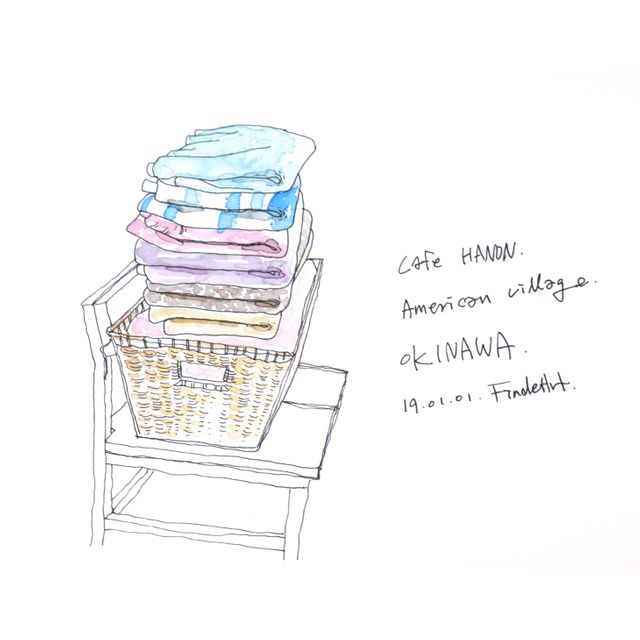 cafe HANON.
American village.
OKINAWA.
19.01.01. FindeArt.